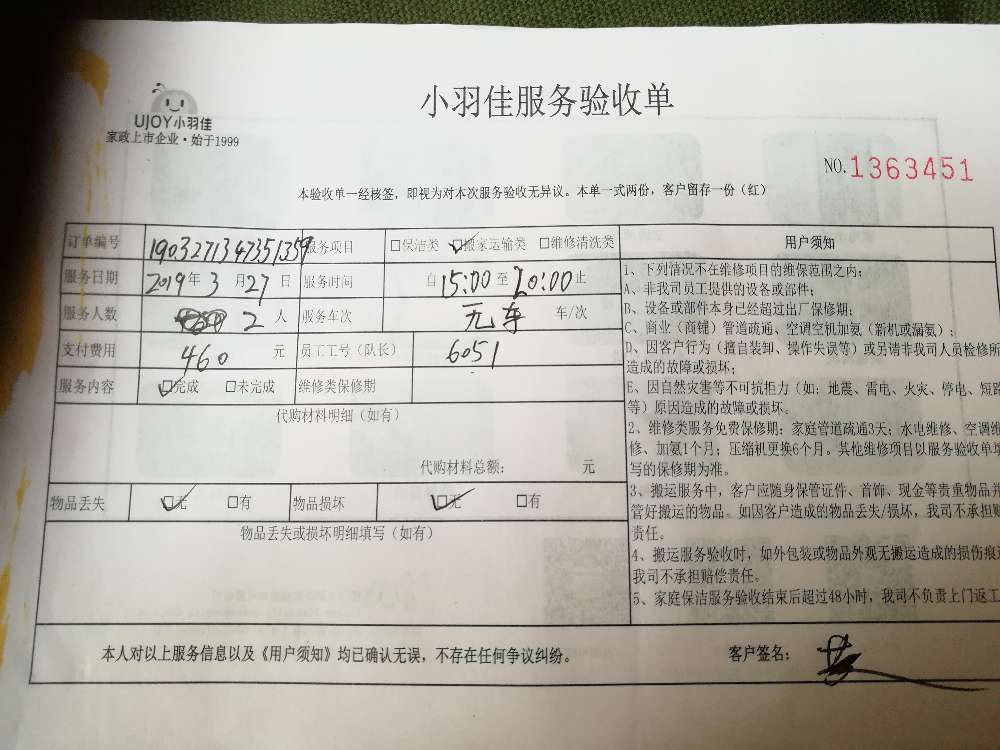 UJOY小羽佳
家政上市企业·始于1999
小羽佳服务验收单
NO.1363451
本验收单一经核签，即视为对本次服务验收无异议。本单一式两份，客户留存一份（红）
订单编号 1903271347351359 服务项目 □保洁类 □搬家运输类 □维修清洗类
服务日期 2019年3月27日 服务时间 自15:00至20:00止
服务人数 2人 服务车次 无车 车/次
支付费用 460元 员工工号（队长） 6051
服务内容 □完成 □未完成 维修类保修期
代购材料明细（如有）
代购材料总额： 元
物品丢失 □无 □有 物品损坏 □无 □有
物品丢失或损坏明细填写（如有）
用户须知
1、下列情况不在维修项目的维保范围之内：
A、非我司员工提供的设备或部件；
B、设备或部件本身已经超过出厂保修期；
C、商业（商铺）管道疏通、空调空机加氨（新机或漏氨）；
D、因客户行为（擅自装卸、操作失误等）或另请非我司人员检修所
造成的故障或损坏；
E、因自然灾害等不可抗拒力（如：地震、雷电、火灾、停电、短路
等）原因造成的故障或损坏。
2、维修类服务免费保修期：家庭管道疏通3天；水电维修、空调维
修、加氨1个月；压缩机更换6个月。其他维修项目以服务验收单填
写的保修期为准。
3、搬运服务中，客户应随身保管证件、首饰、现金等贵重物品并
管好搬运的物品。如因客户造成的物品丢失/损坏，我司不承担赔
责任。
4、搬运服务验收时，如外包装或物品外观无搬运造成的损伤痕迹
我司不承担赔偿责任。
5、家庭保洁服务验收结束后超过48小时，我司不负责上门返工
本人对以上服务信息以及《用户须知》均已确认无误，不存在任何争议纠纷。
客户签名：